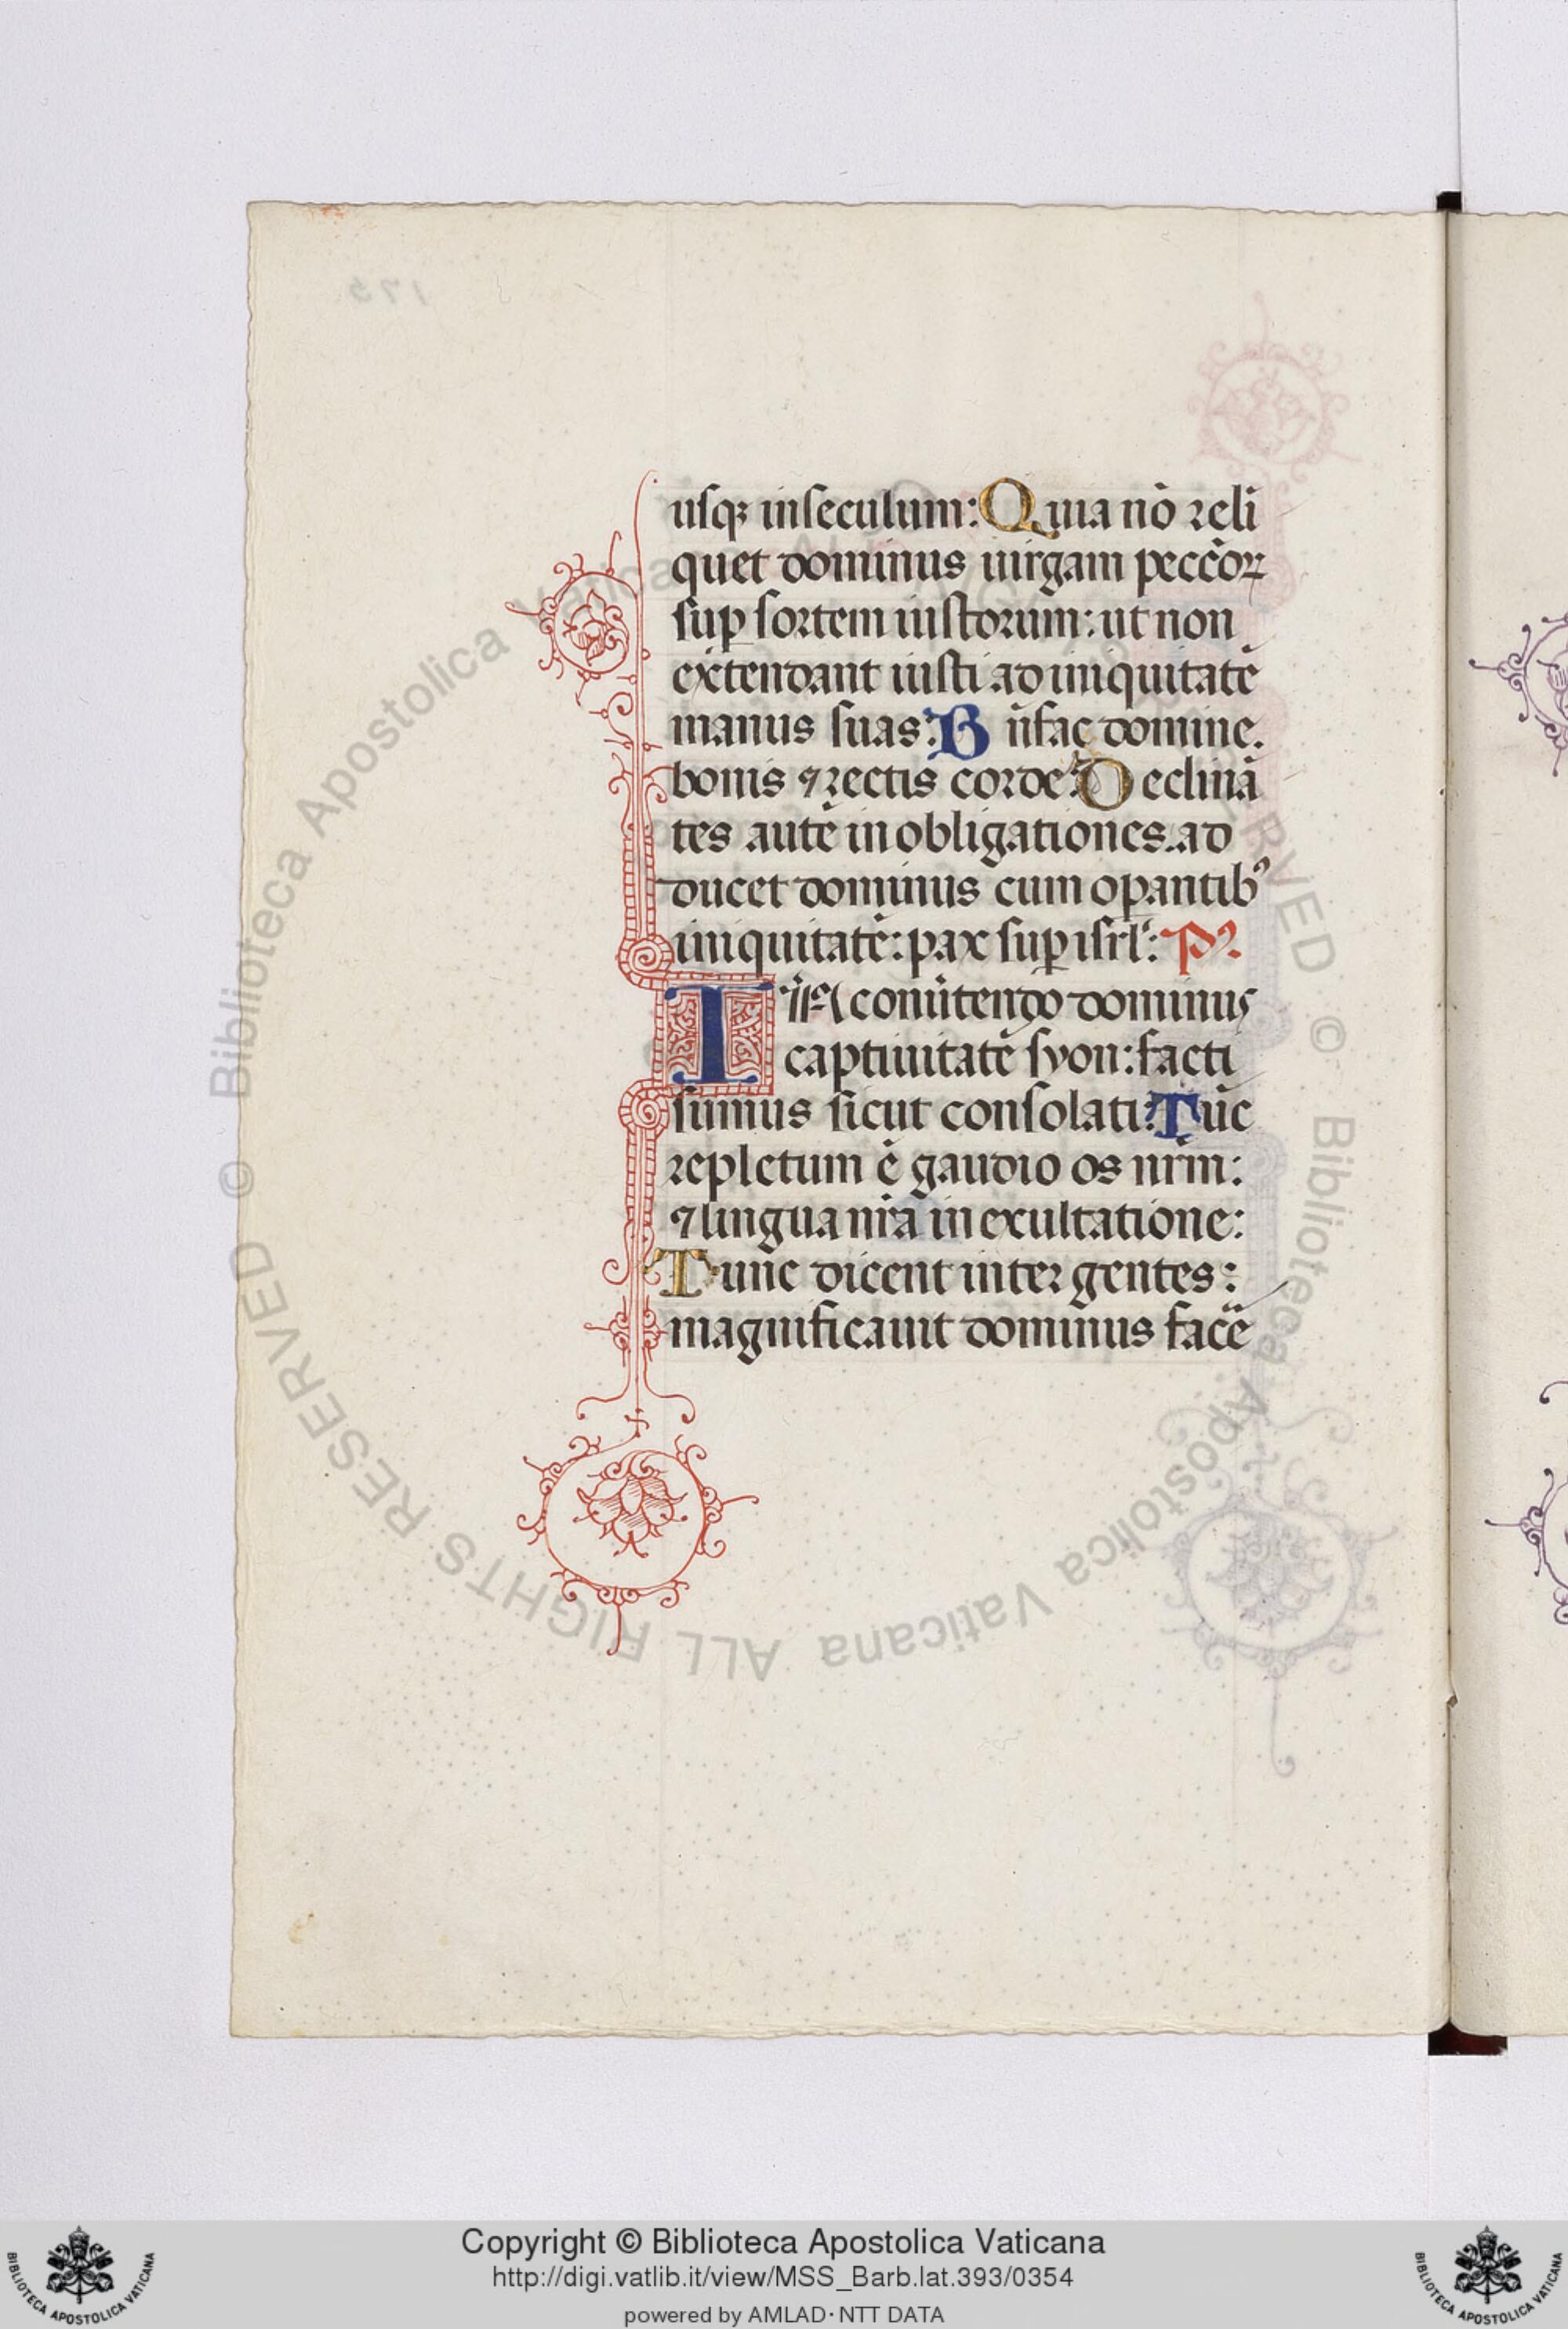 usqꝫ in seculum: Quia nō reli
quet dominus uirgam peccōꝝ
suꝑ sortem iustorum: ut non
extendant iusti ad iniquitatē
manus suas: Bn̄fac domine
bonis ⁊ rectis corde: Declinā
tes autē in obligationes. ad
ducet dominus cum oꝑantibꝰ
iniquitatē: pax suꝑ isrl̄: Pꝰ
IN conuͥtendo dominus
captiuitatē syon: facti
sumus sicut consolati: Tūc
repletum ē gaudio os nr̄m:
⁊ lingua nr̄a in exultatione:
Tunc dicent inter gentes:
magnificauit dominus facē
175
© Biblioteca Apostolica Vaticana ALL RIGHTS RESERVED
Copyright © Biblioteca Apostolica Vaticana
http://digi.vatlib.it/view/MSS_Barb.lat.393/0354
powered by AMLAD · NTT DATA
BIBLIOTECA APOSTOLICA VATICANA
BIBLIOTECA APOSTOLICA VATICANA